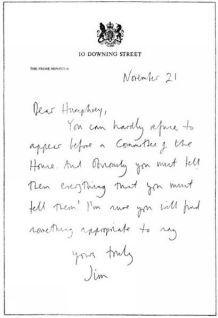 10 DOWNING STREET
THE PRIME MINISTER
November 21
Dear Humphrey,
You can hardly refuse to
appear before a Committee of the
House. And obviously you must tell
them everything that you must
tell them! I'm sure you will find
something appropriate to say
Yours truly
Jim